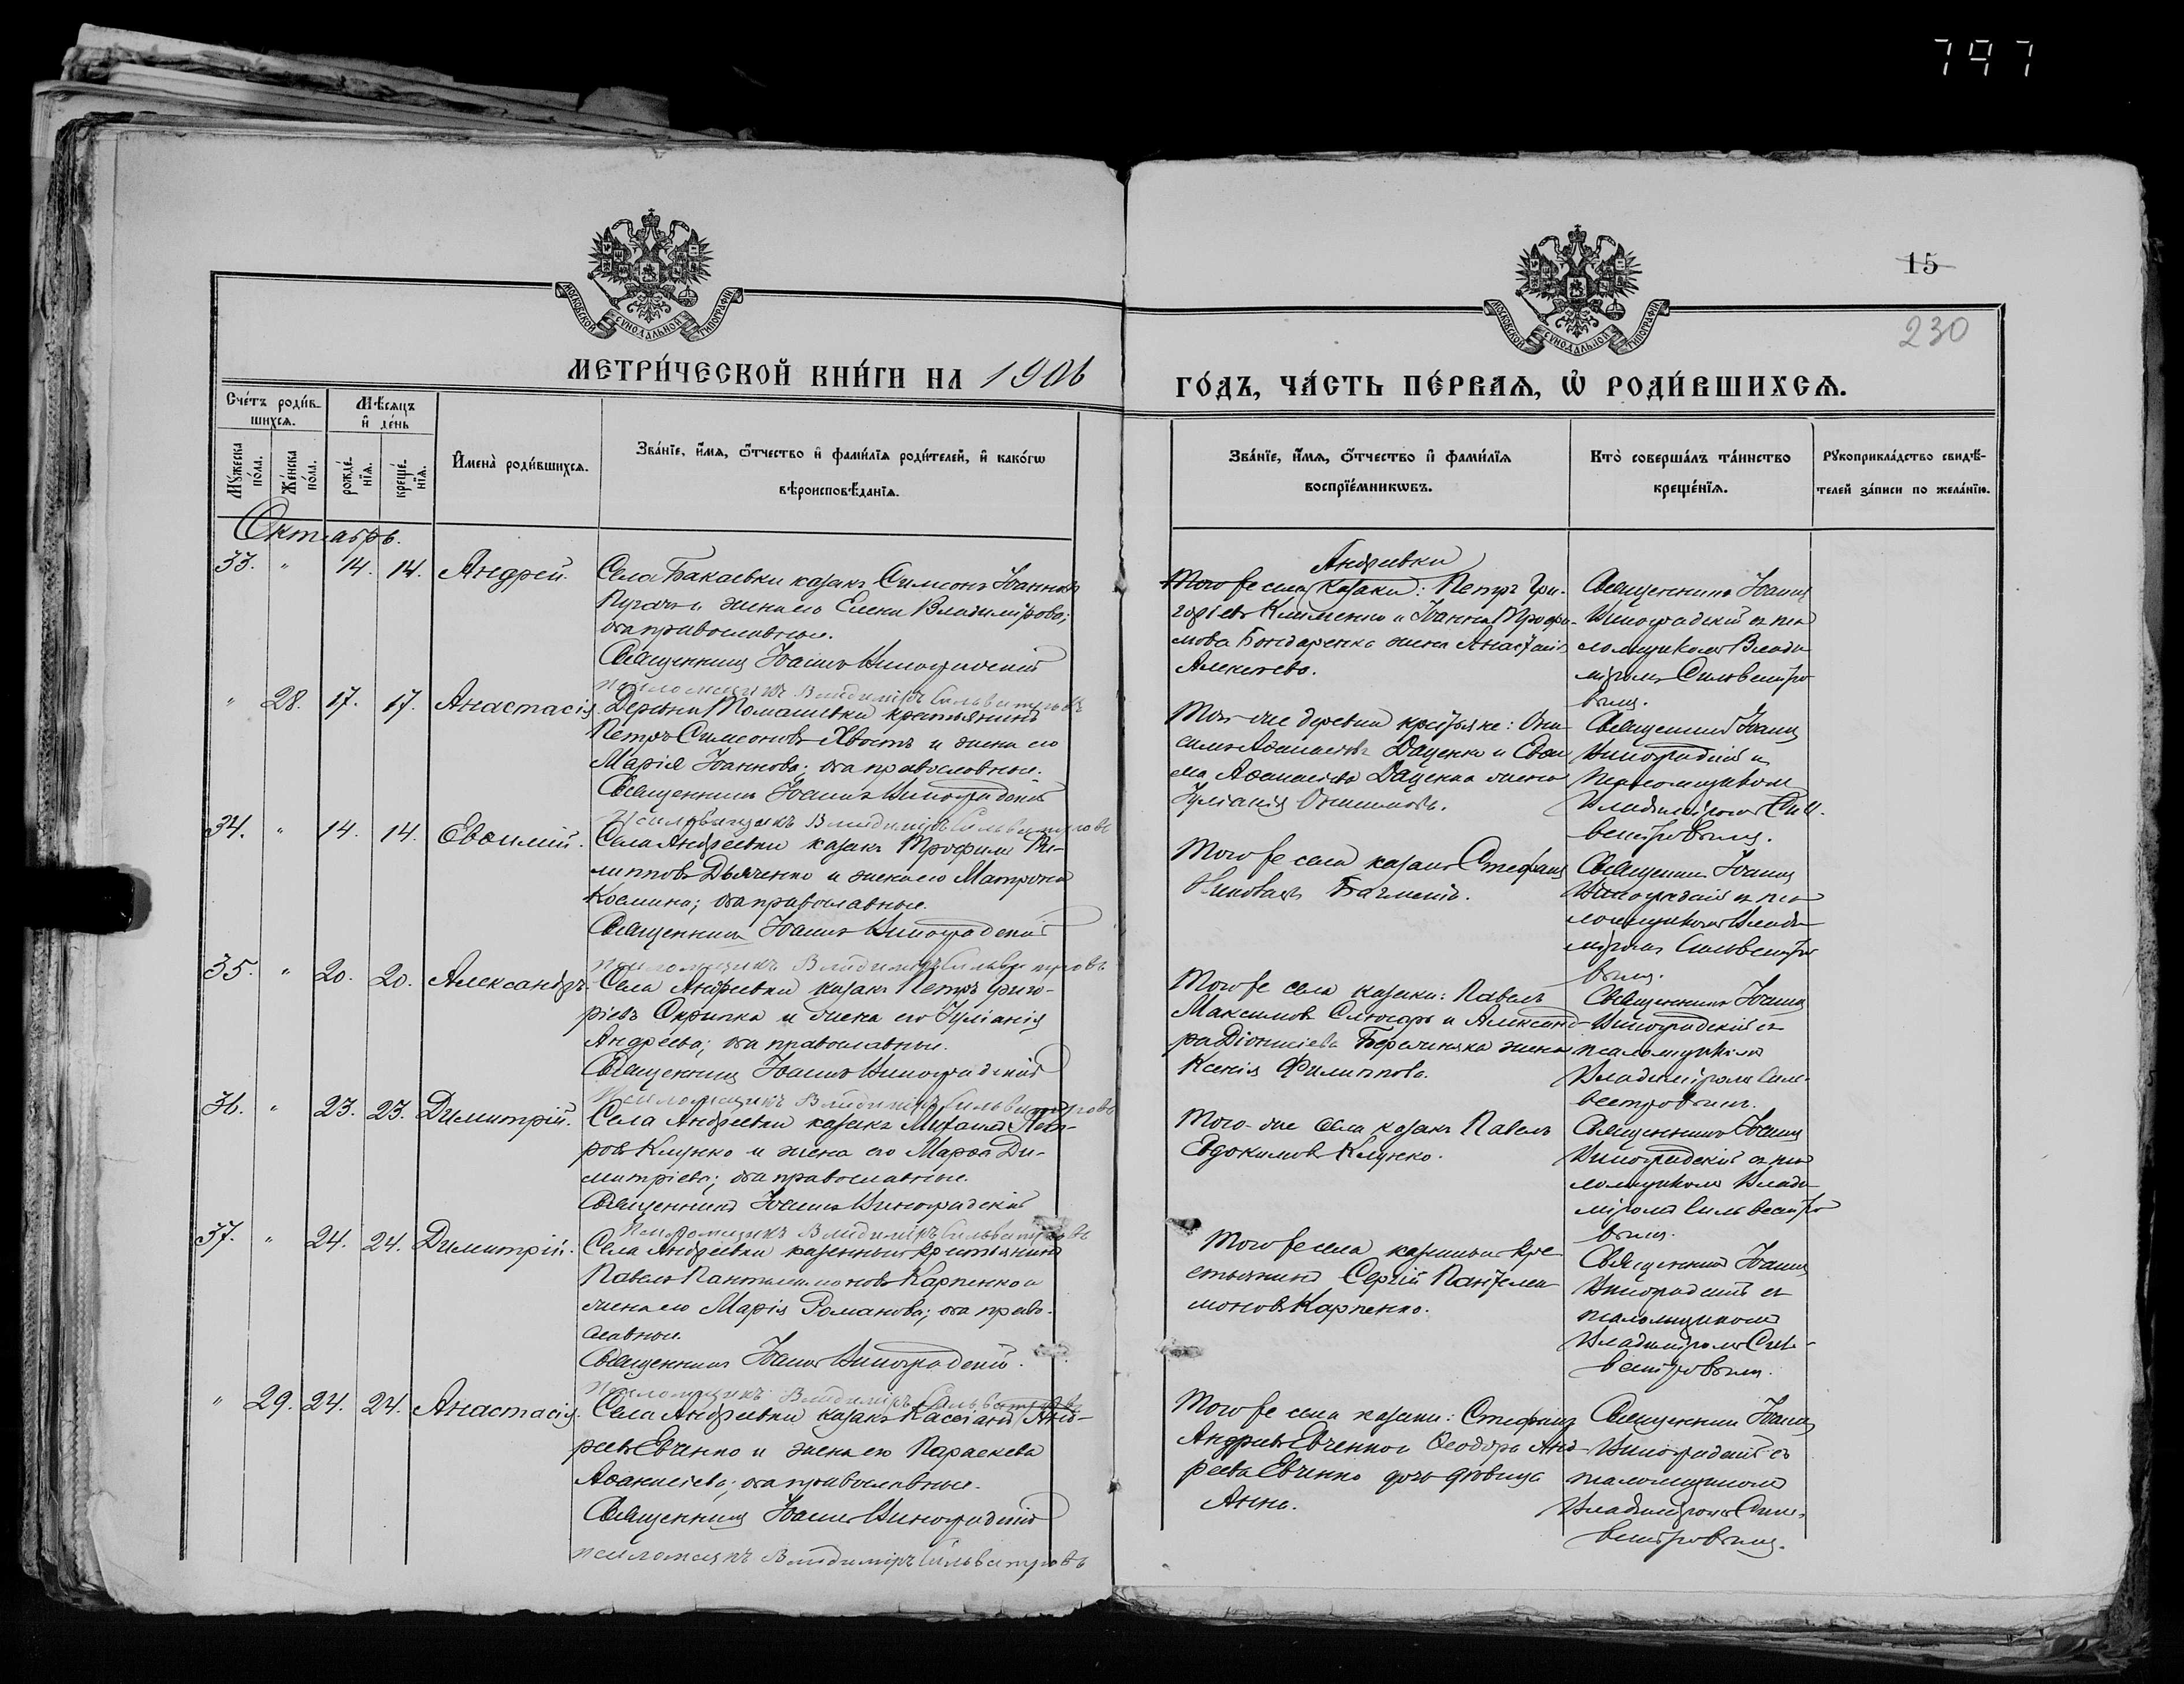 797
15
230
МОСКОВСКОЙ СУНОДАЛЬНОЙ ТИПОГРАФІИ
МОСКОВСКОЙ СУНОДАЛЬНОЙ ТИПОГРАФІИ
МЕТРИ́ЧЕСКОЙ КНИ́ГИ НА 1906
ГО́ДЪ, ЧА́СТЬ ПЕ́РВАѦ, Ѡ҆ РОДИ́ВШИХСѦ.
Сче́тъ роди́в-
шихсѧ.
Мѣ́сѧцъ
и҆ де́нь
Мꙋ́жеска по́ла.
Же́нска по́ла.
рожде́-
нїѧ.
креще́-
нїѧ.
И҆мена̀ роди́вшихсѧ.
Зва́нїе, и҆́мѧ, ѻ҆́тчество и҆ фами́лїѧ роди́телей, и҆ како́гѡ
вѣроисповѣ́данїѧ.
Зва́нїе, и҆́мѧ, ѻ҆́тчество и҆ фами́лїѧ
воспрїе́мникѡвъ.
Кто̀ соверша́лъ та́инство
креще́нїѧ.
Рꙋкоприкла́дство свидѣ́-
телей за́писи по жела́нїю.
Октябрь.
33. " 14. 14. Андрей.
Села Бакаевки казакъ Симеонъ Іоанновъ
Пугачъ и жена его Елена Владимірова;
оба православные.
Священникъ Іоаннъ Виноградскій
псаломщикъ Владиміръ Сильвестровъ
Андреевки
Того же села казаки: Петръ Гри-
горіевъ Клименко и Іоанна Трофи-
мова Бондаренка жена Анастасія
Алексеева.
Священникъ Іоаннъ
Виноградскій съ пса
ломщикомъ Влади
міромъ Сильвестро
вымъ.
" 28. 17. 17. Анастасія.
Деревни Томашевки крестьянинъ
Петръ Симеоновъ Хвостъ и жена его
Марія Іоаннова; оба православные.
Священникъ Іоаннъ Виноградскій
Псаломщикъ Владиміръ Сильвестровъ
Той-же деревни крестьяне: Они-
симъ Аѳанасіевъ Даценко и
Аѳанасіева Даценка жена
Іуліанія
Священникъ Іоаннъ
Виноградскій съ
псаломщикомъ
Владиміромъ Силь-
вестровымъ.
34. " 14. 14. Евѳимій.
Села Андреевки казакъ Трофимъ Фи-
липповъ Дьяченко и жена его Матрона
Космина; оба православные.
Священникъ Іоаннъ Виноградскій
псаломщикъ Владиміръ Сильвестровъ
Того же села казакъ Стефанъ
Священникъ Іоаннъ
Виноградскій съ пса
ломщикомъ Влади
міромъ Сильвестро
вымъ.
35. " 20. 20. Александръ.
Села Андреевки казакъ Петръ Григо-
ріевъ Скрипка и жена его Іуліанія
Андреева; оба православные.
Священникъ Іоаннъ Виноградскій
Псаломщикъ Владиміръ Сильвестровъ
Того же села казаки: Павелъ
Максимовъ Слюсарь и Александ-
ра Діонисіева жена
Ксенія Филиппова.
Священникъ Іоаннъ
Виноградскій съ
псаломщикомъ
Владиміромъ Силь-
вестровымъ.
36. " 23. 23. Димитрій.
Села Андреевки казакъ Михаилъ Пет-
ровъ Клунко и жена его Марѳа Ди-
митріева; оба православные.
Священникъ Іоаннъ Виноградскій
Псаломщикъ Владиміръ Сильвестровъ
Того-же села казакъ Павелъ
Евдокимовъ Клунко.
Священникъ Іоаннъ
Виноградскій съ пса
ломщикомъ Влади
міромъ Сильвестро
вымъ.
37. " 24. 24. Димитрій.
Села Андреевки казенный крестьянинъ
Павелъ Пантелеимоновъ Карпенко и
жена его Марія Романова; оба право-
славные.
Священникъ Іоаннъ Виноградскій.
Псаломщикъ Владиміръ Сильвестровъ
Того же села казенный кре
стьянинъ Сергій Пантелеи
моновъ Карпенко.
Священникъ Іоаннъ
Виноградскій съ
псаломщикомъ
Владиміромъ Силь-
вестровымъ.
" 29. 24. 24. Анастасія.
Села Андреевки казакъ Кассіанъ Анд-
реевъ Евченко и жена его Параскева
Аѳанасіева; оба православные.
Священникъ Іоаннъ Виноградскій
псаломщикъ Владиміръ Сильвестровъ
Того же села казаки: Стефанъ
Андреевъ Евченко и Ѳеодора Анд-
реева Евченко дочь девица
Анна.
Священникъ Іоаннъ
Виноградскій съ
псаломщикомъ
Владиміромъ Силь-
вестровымъ.